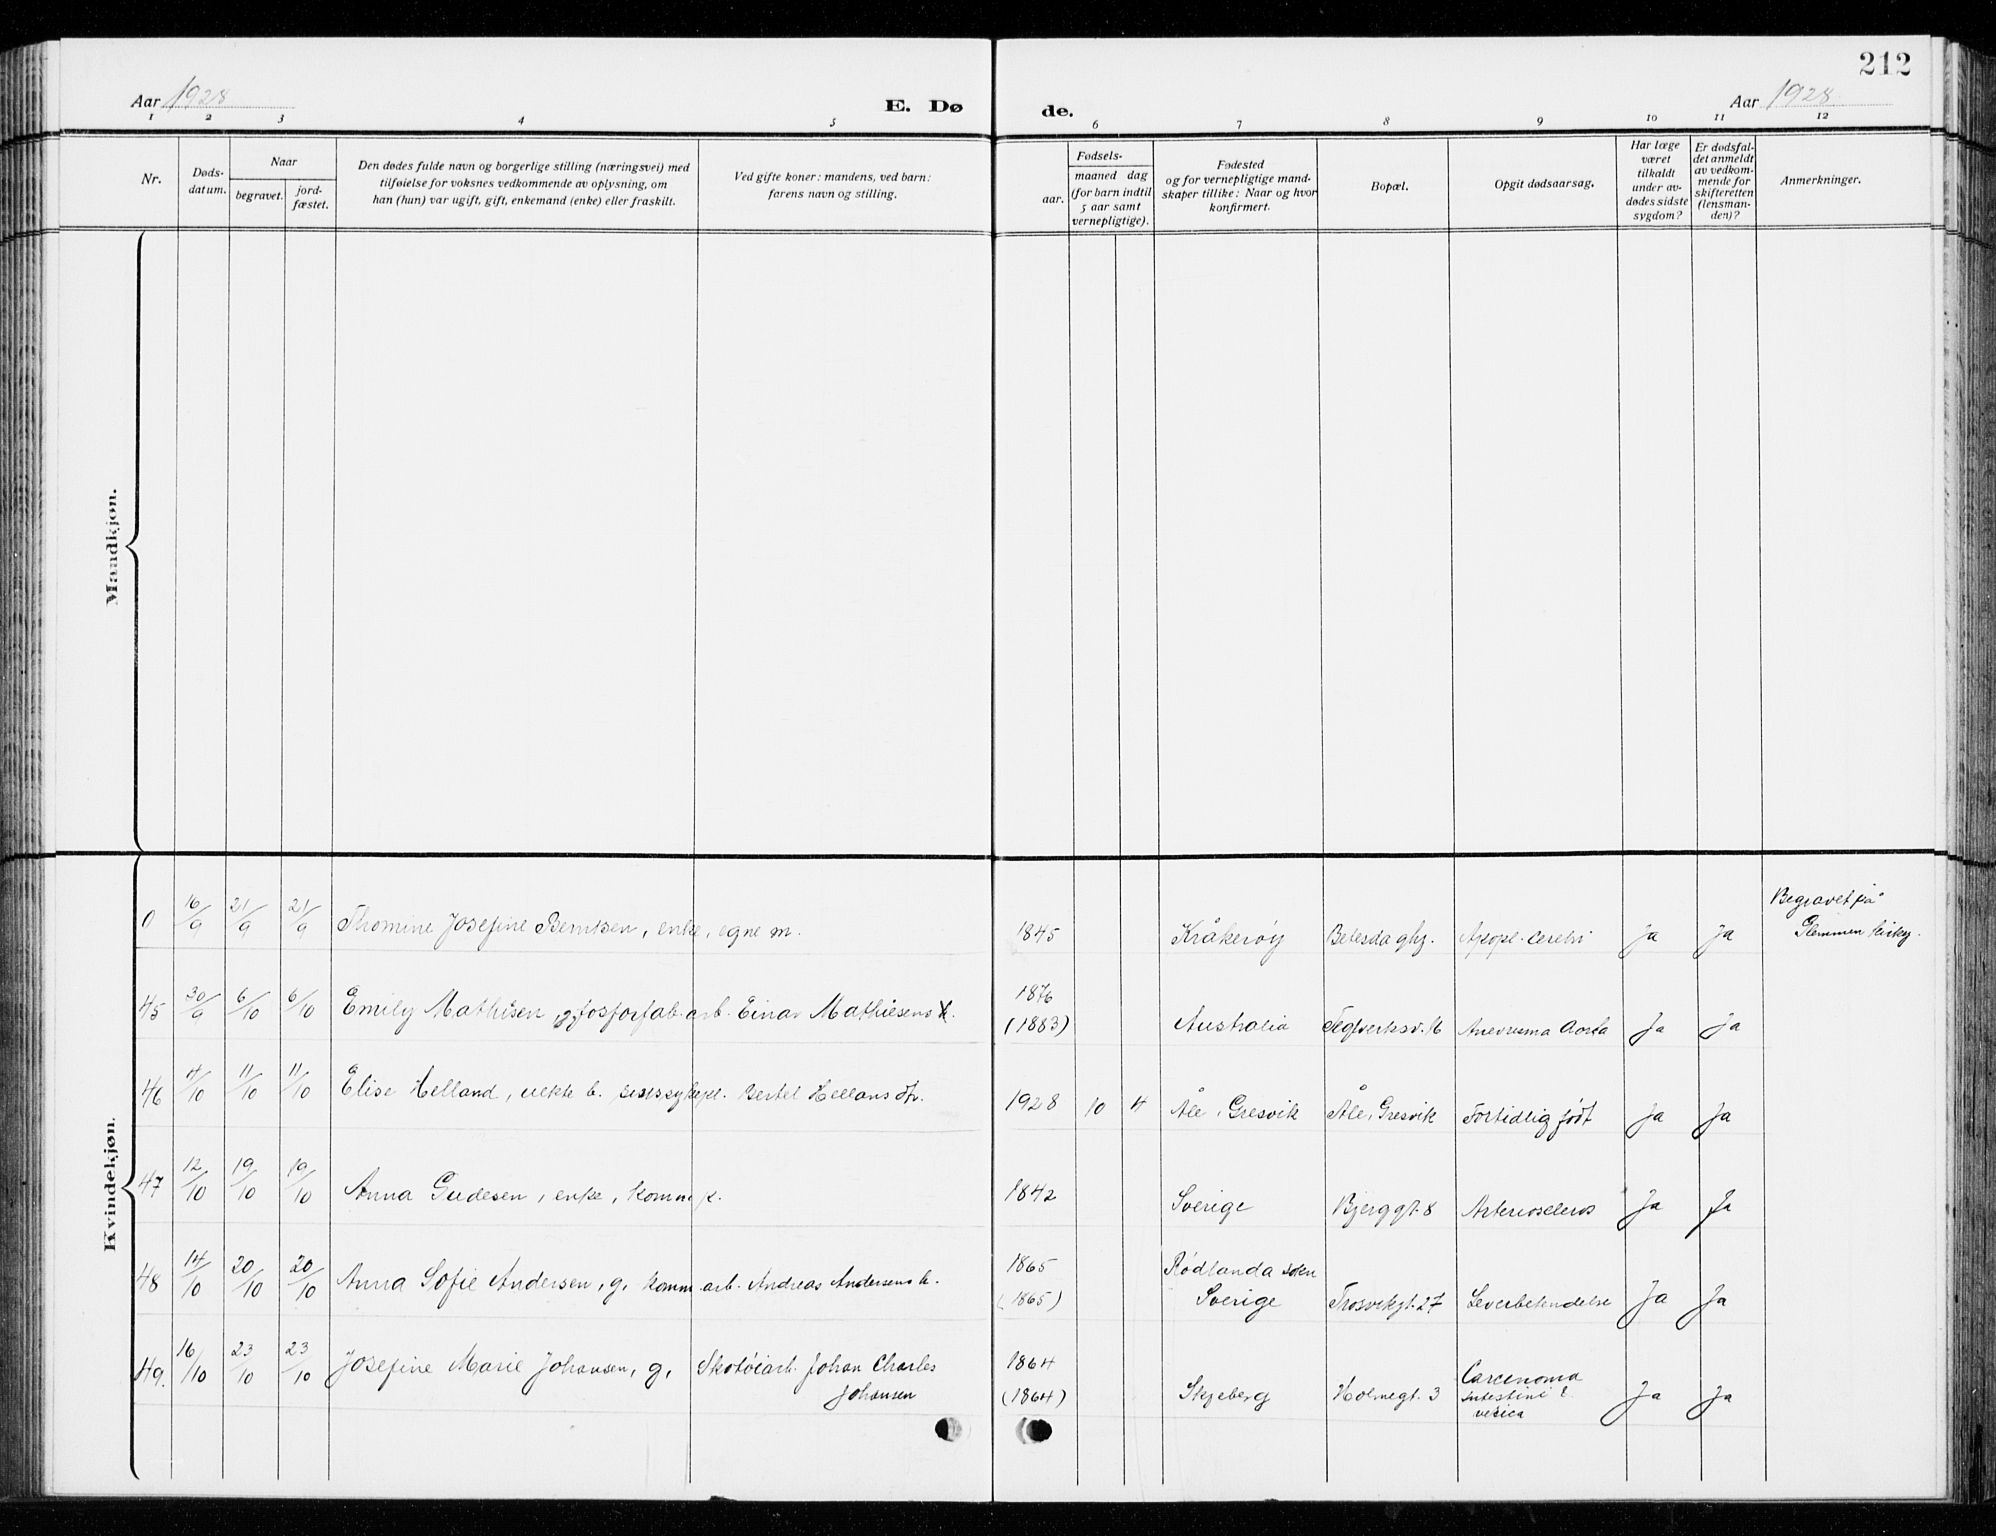 212
Aar 1928
E. Dø
de.
Aar 1928
1 2 3 4 5 6 7 8 9 10 11 12
Nr.
Døds-
datum.
Naar
begravet.
jord-
fæstet.
Den dødes fulde navn og borgerlige stilling (næringsvei) med
tilføielse for voksnes vedkommende av oplysning, om
han (hun) var ugift, gift, enkemand (enke) eller fraskilt.
Ved gifte koner: mandens, ved barn:
farens navn og stilling.
Fødsels-
aar.
maaned dag
(for barn indtil
5 aar samt
vernepligtige).
Fødested
og for vernepligtige mand-
skaper tillike: Naar og hvor
konfirmert.
Bopæl.
Opgit dødsaarsag.
Har læge
været
tilkaldt
under av-
dødes sidste
sygdom?
Er dødsfal-
det anmeldt
av vedkom-
mende for
skifteretten
(lensman-
den)?
Anmerkninger.
Mandkjøn.
Kvindekjøn.
0 16/9 21/9 21/9 Thomine Josefine Berntsen, enke, egne m. 1845 Kråkerøy Betesda ghj. Apopl. cerebri Ja Ja Begravet på
Glemmen kirkg.
45 30/9 6/10 6/10 Emily Mathisen, g, fosforfab. arb. Einar Mathiesens h. 1876
(1883) Australia Teglverksv. 16 Aneurisma Aorta Ja Ja
46 4/10 11/10 11/10 Elise Helland, ekte b. sinssykepl. Bertel Hellans dtr. 1928 10 4 Åle, Gresvik Åle, Gresvik Fortidlig født Ja Ja
47 12/10 19/10 19/10 Anna Gudesen, enke, komm p. 1842 Sverige Bjerggt. 8 Arterioscleros Ja Ja
48 14/10 20/10 20/10 Anna Sofie Andersen, g, komm. arb. Andreas Andersens h. 1865
(1865) Rødlanda sokn
Sverige Trosvikgt. 27 Leverbetendelse Ja Ja
49. 16/10 23/10 23/10 Josefine Marie Johansen, g, Skotøiarb. Johan Charles
Johansen 1864
(1864) Skjeberg Holmegt. 3 Carcenoma
intestini &
vesica Ja Ja